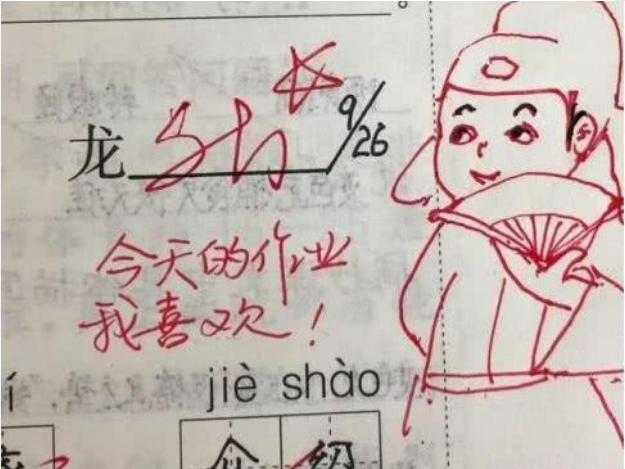 龙
9/26
今天的作业
我喜欢！
í jiè shào
介绍